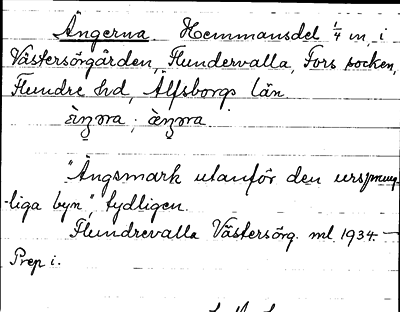 Ängerna Hemmansdel ¼ m, i
Västersörgården, Flundervalla, Fors socken,
Flundre hd, Älfsborgs län
"Ängsmark utanför den ursprung-
liga byn", tydligen.
Flundrevalla Västersörg. ml 1934. —
Prep i.